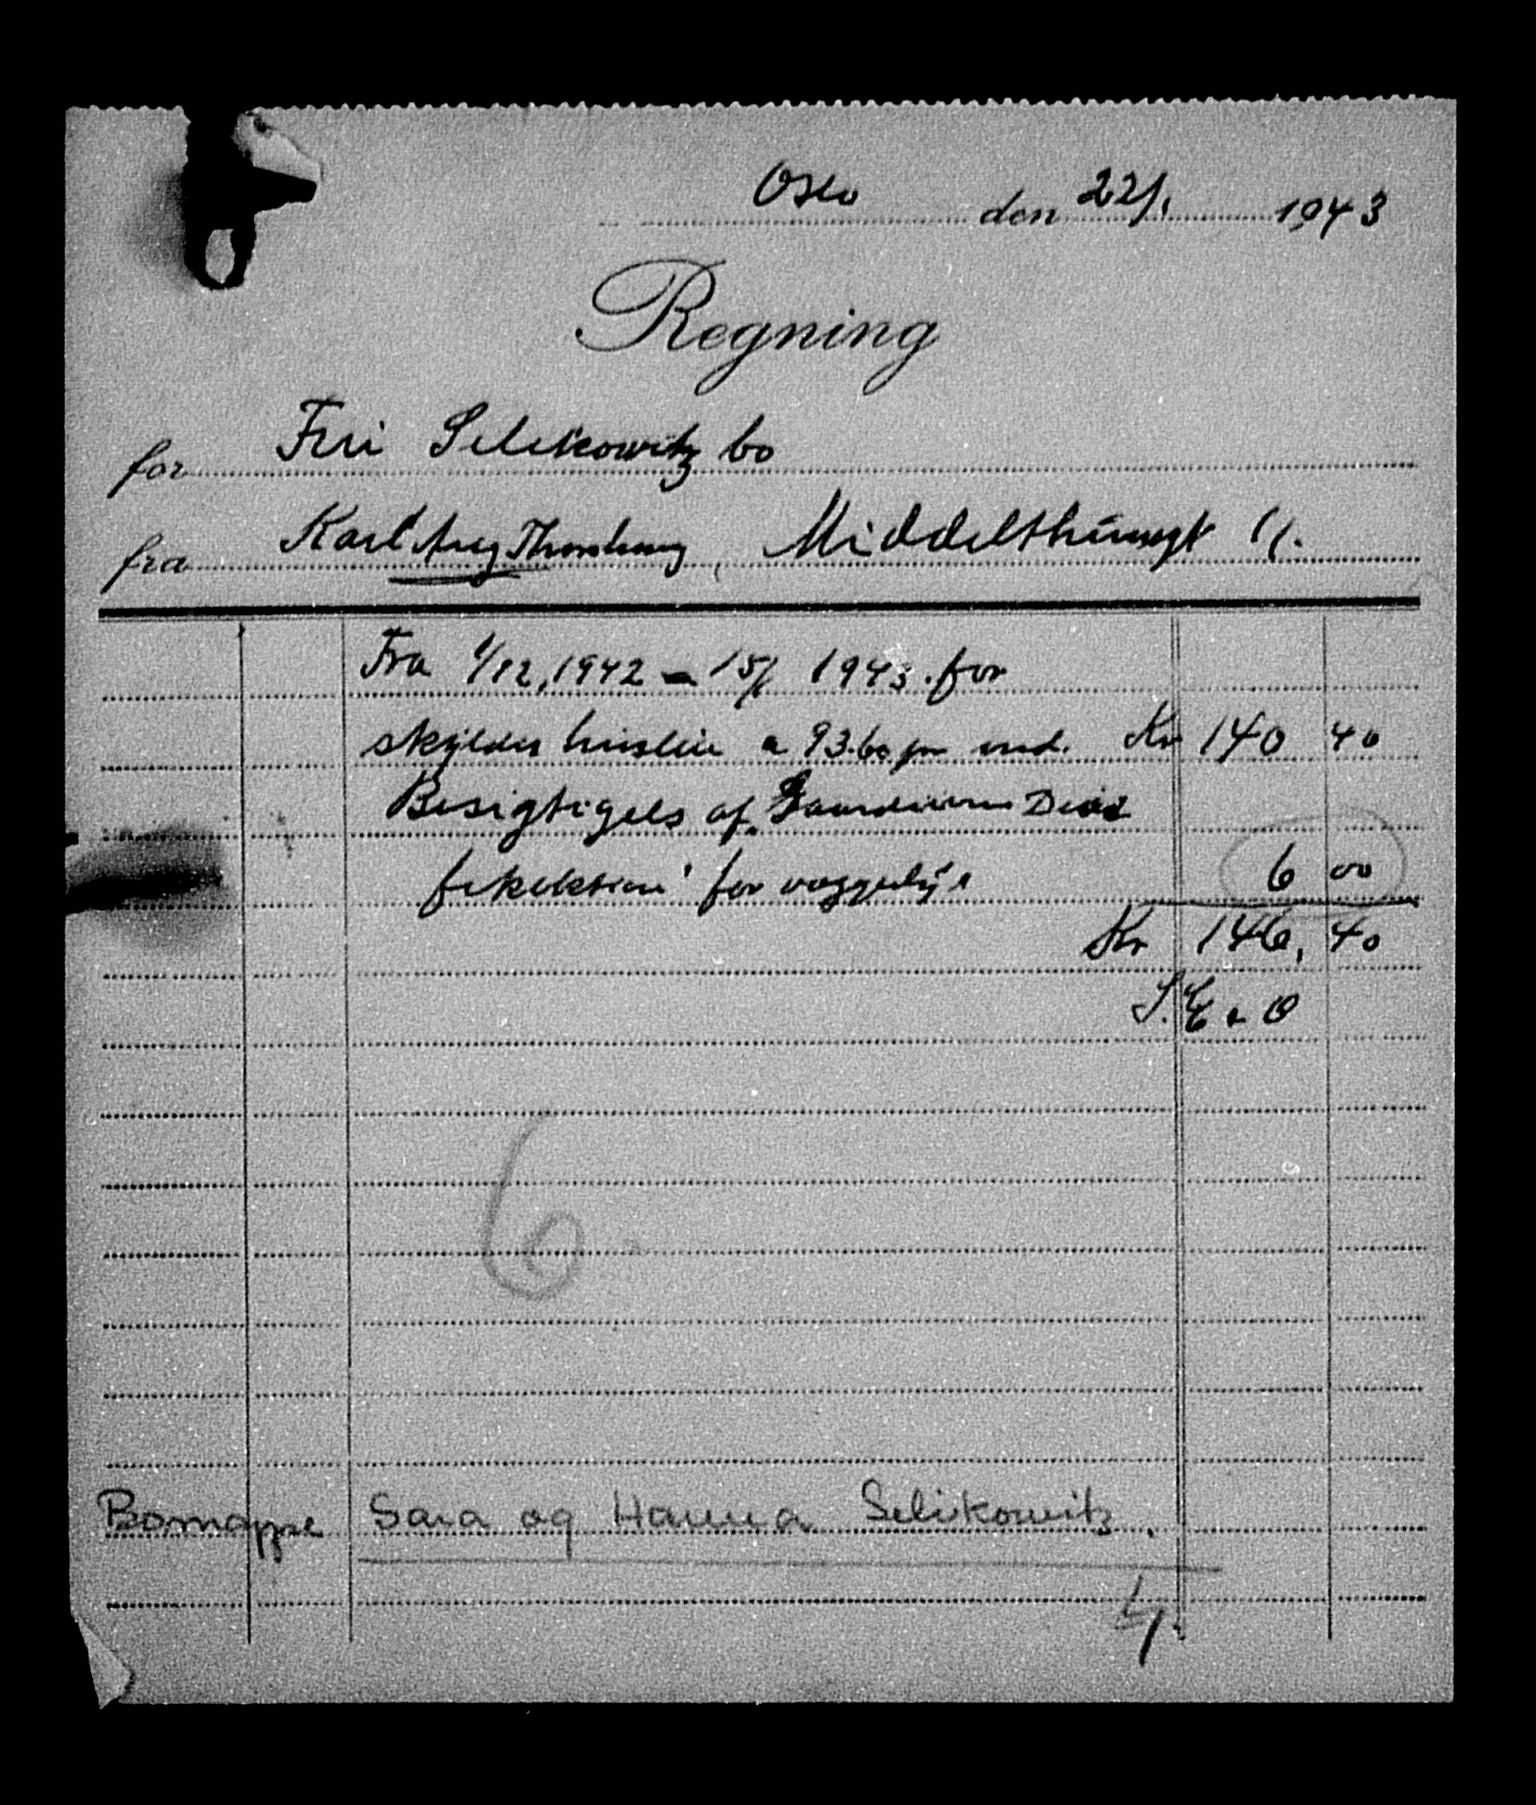 Oslo den 22/1. 1943
Regning
for Frn Selikowitz bo
fra Karl Aug Thorshaug, Middelthunsgt 11.
Fra 1/12, 1942 - 15/1 1943. for
skyldes husleie a 93.60 pr md. Kr 140 40
Besigtigels af Gaardeierne Desi
fekektion for væggelys 6 00
Kr 146, 40
S. E & O
6
Bomappe Sara og Hanna Selikowitz.
4.